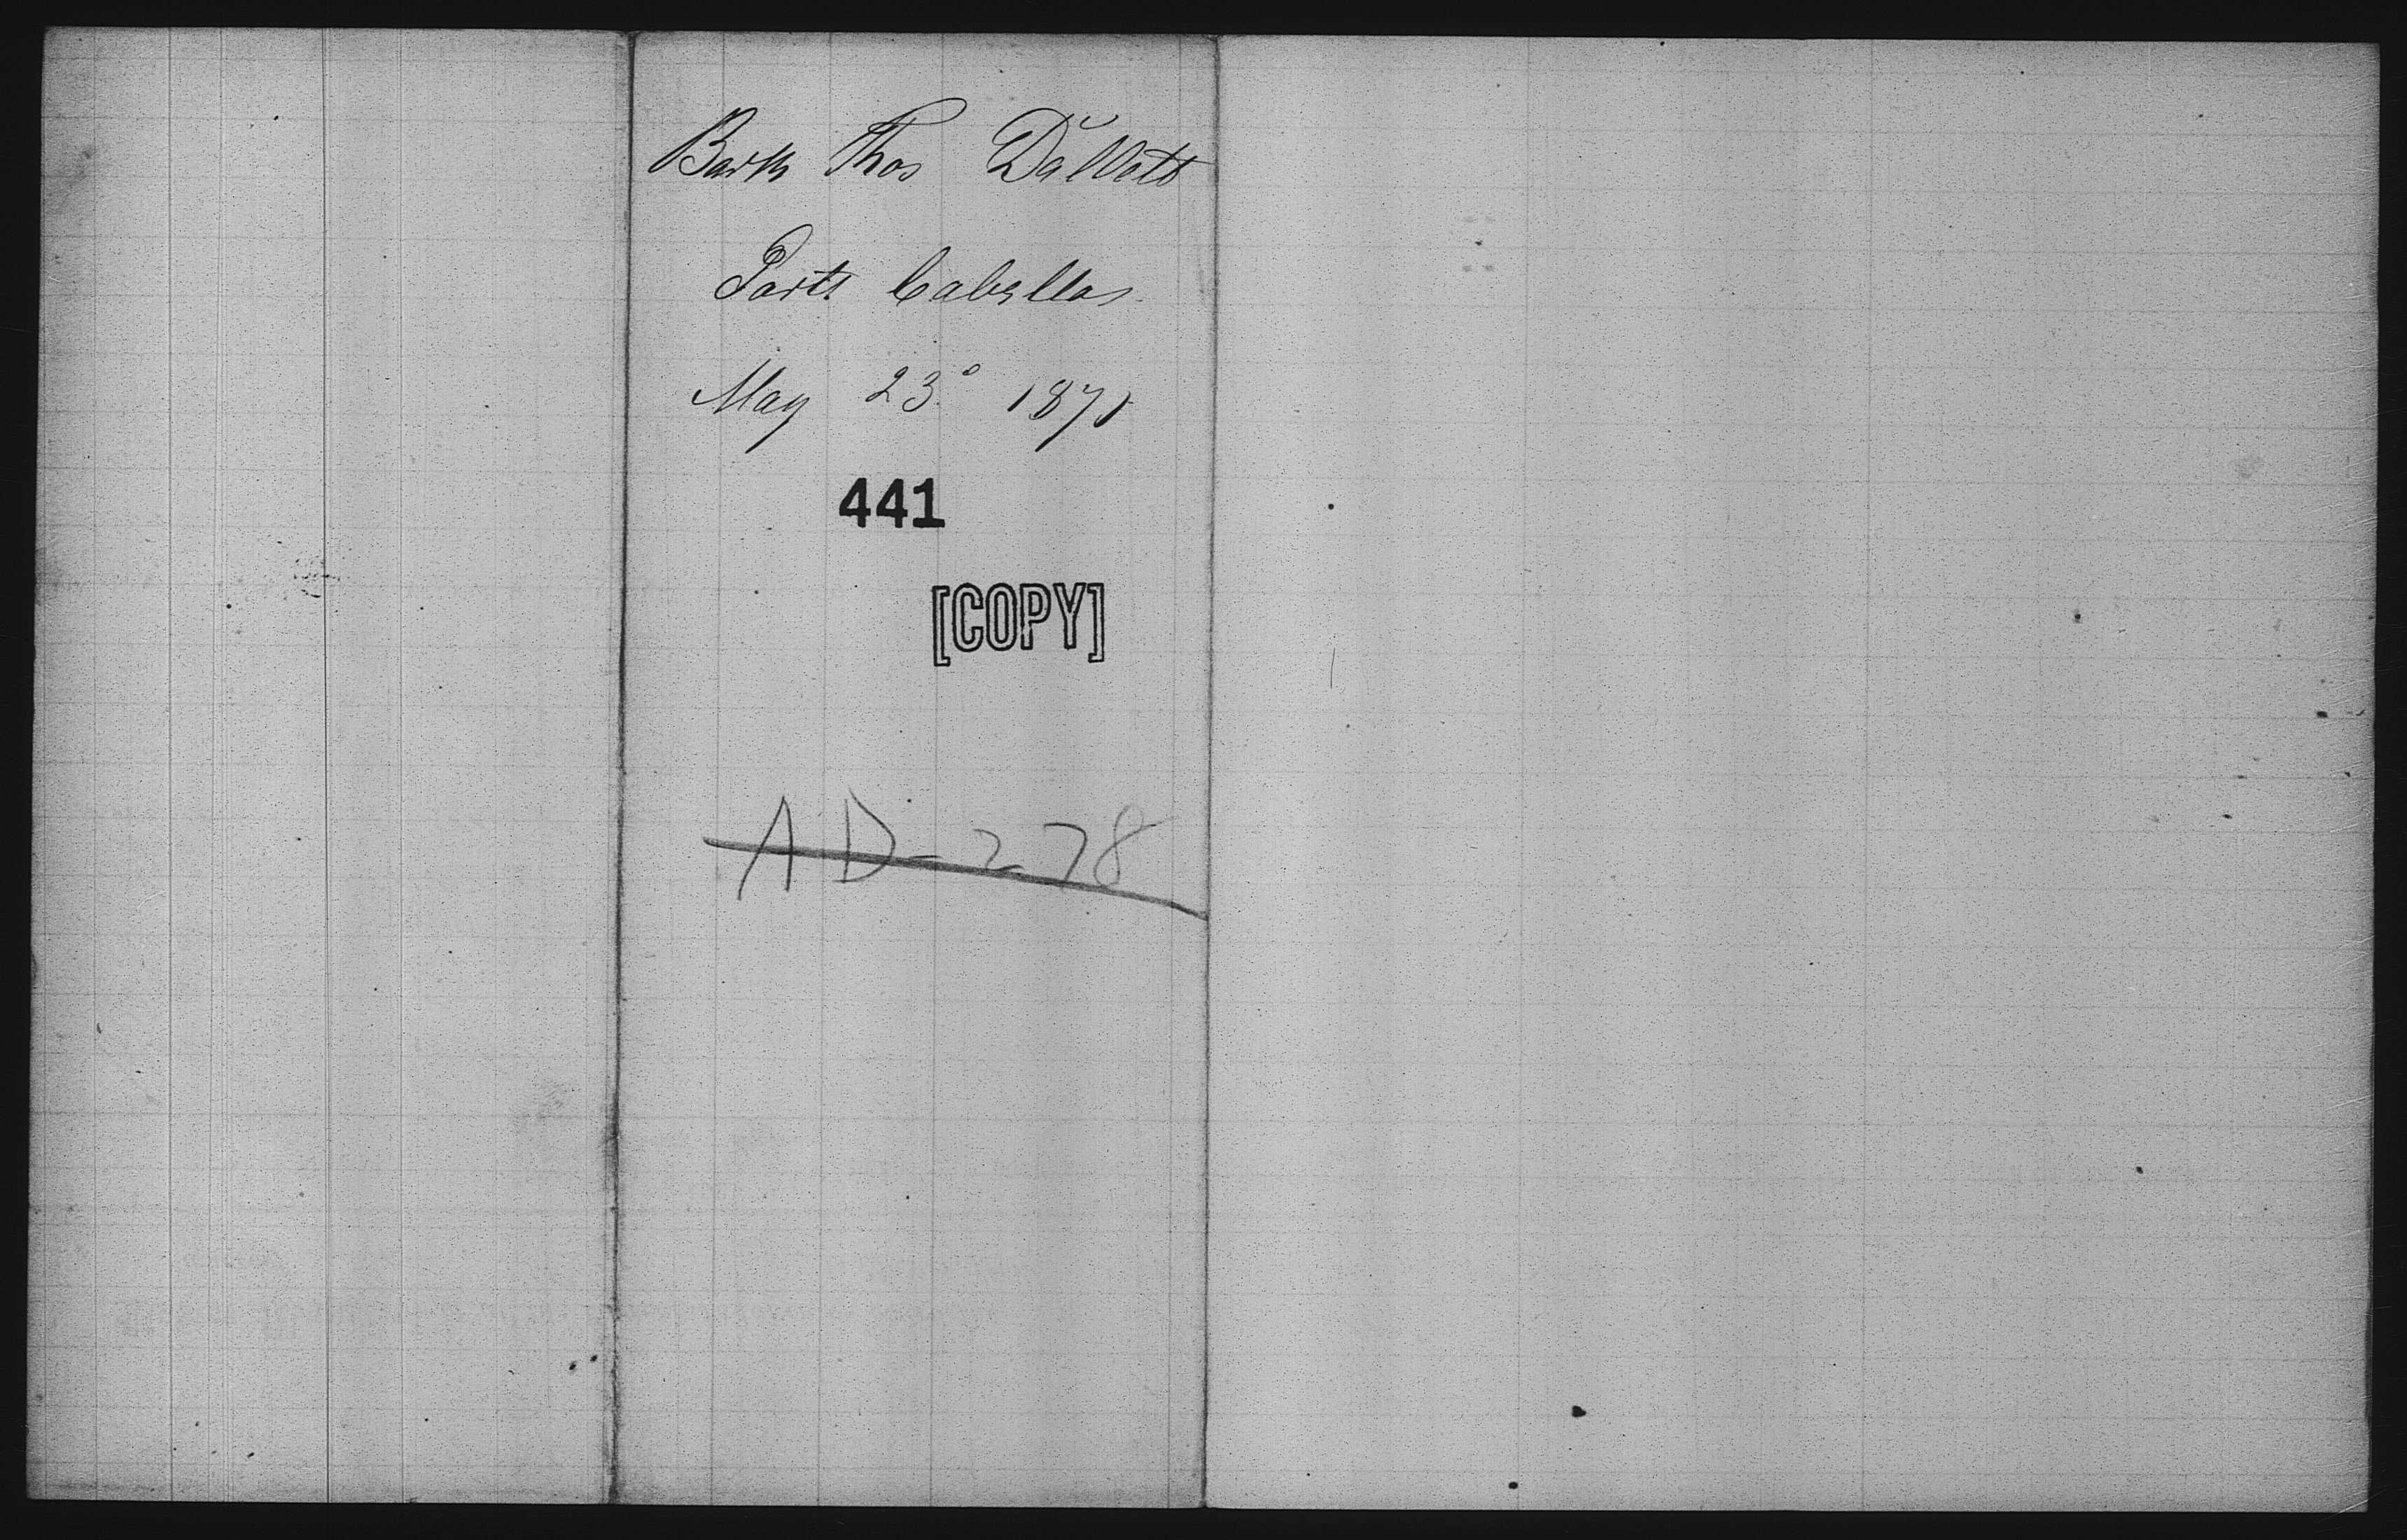 Bark Thos Dallett
Porto Cabello
May 23° 1871
441
[COPY]
AD-278